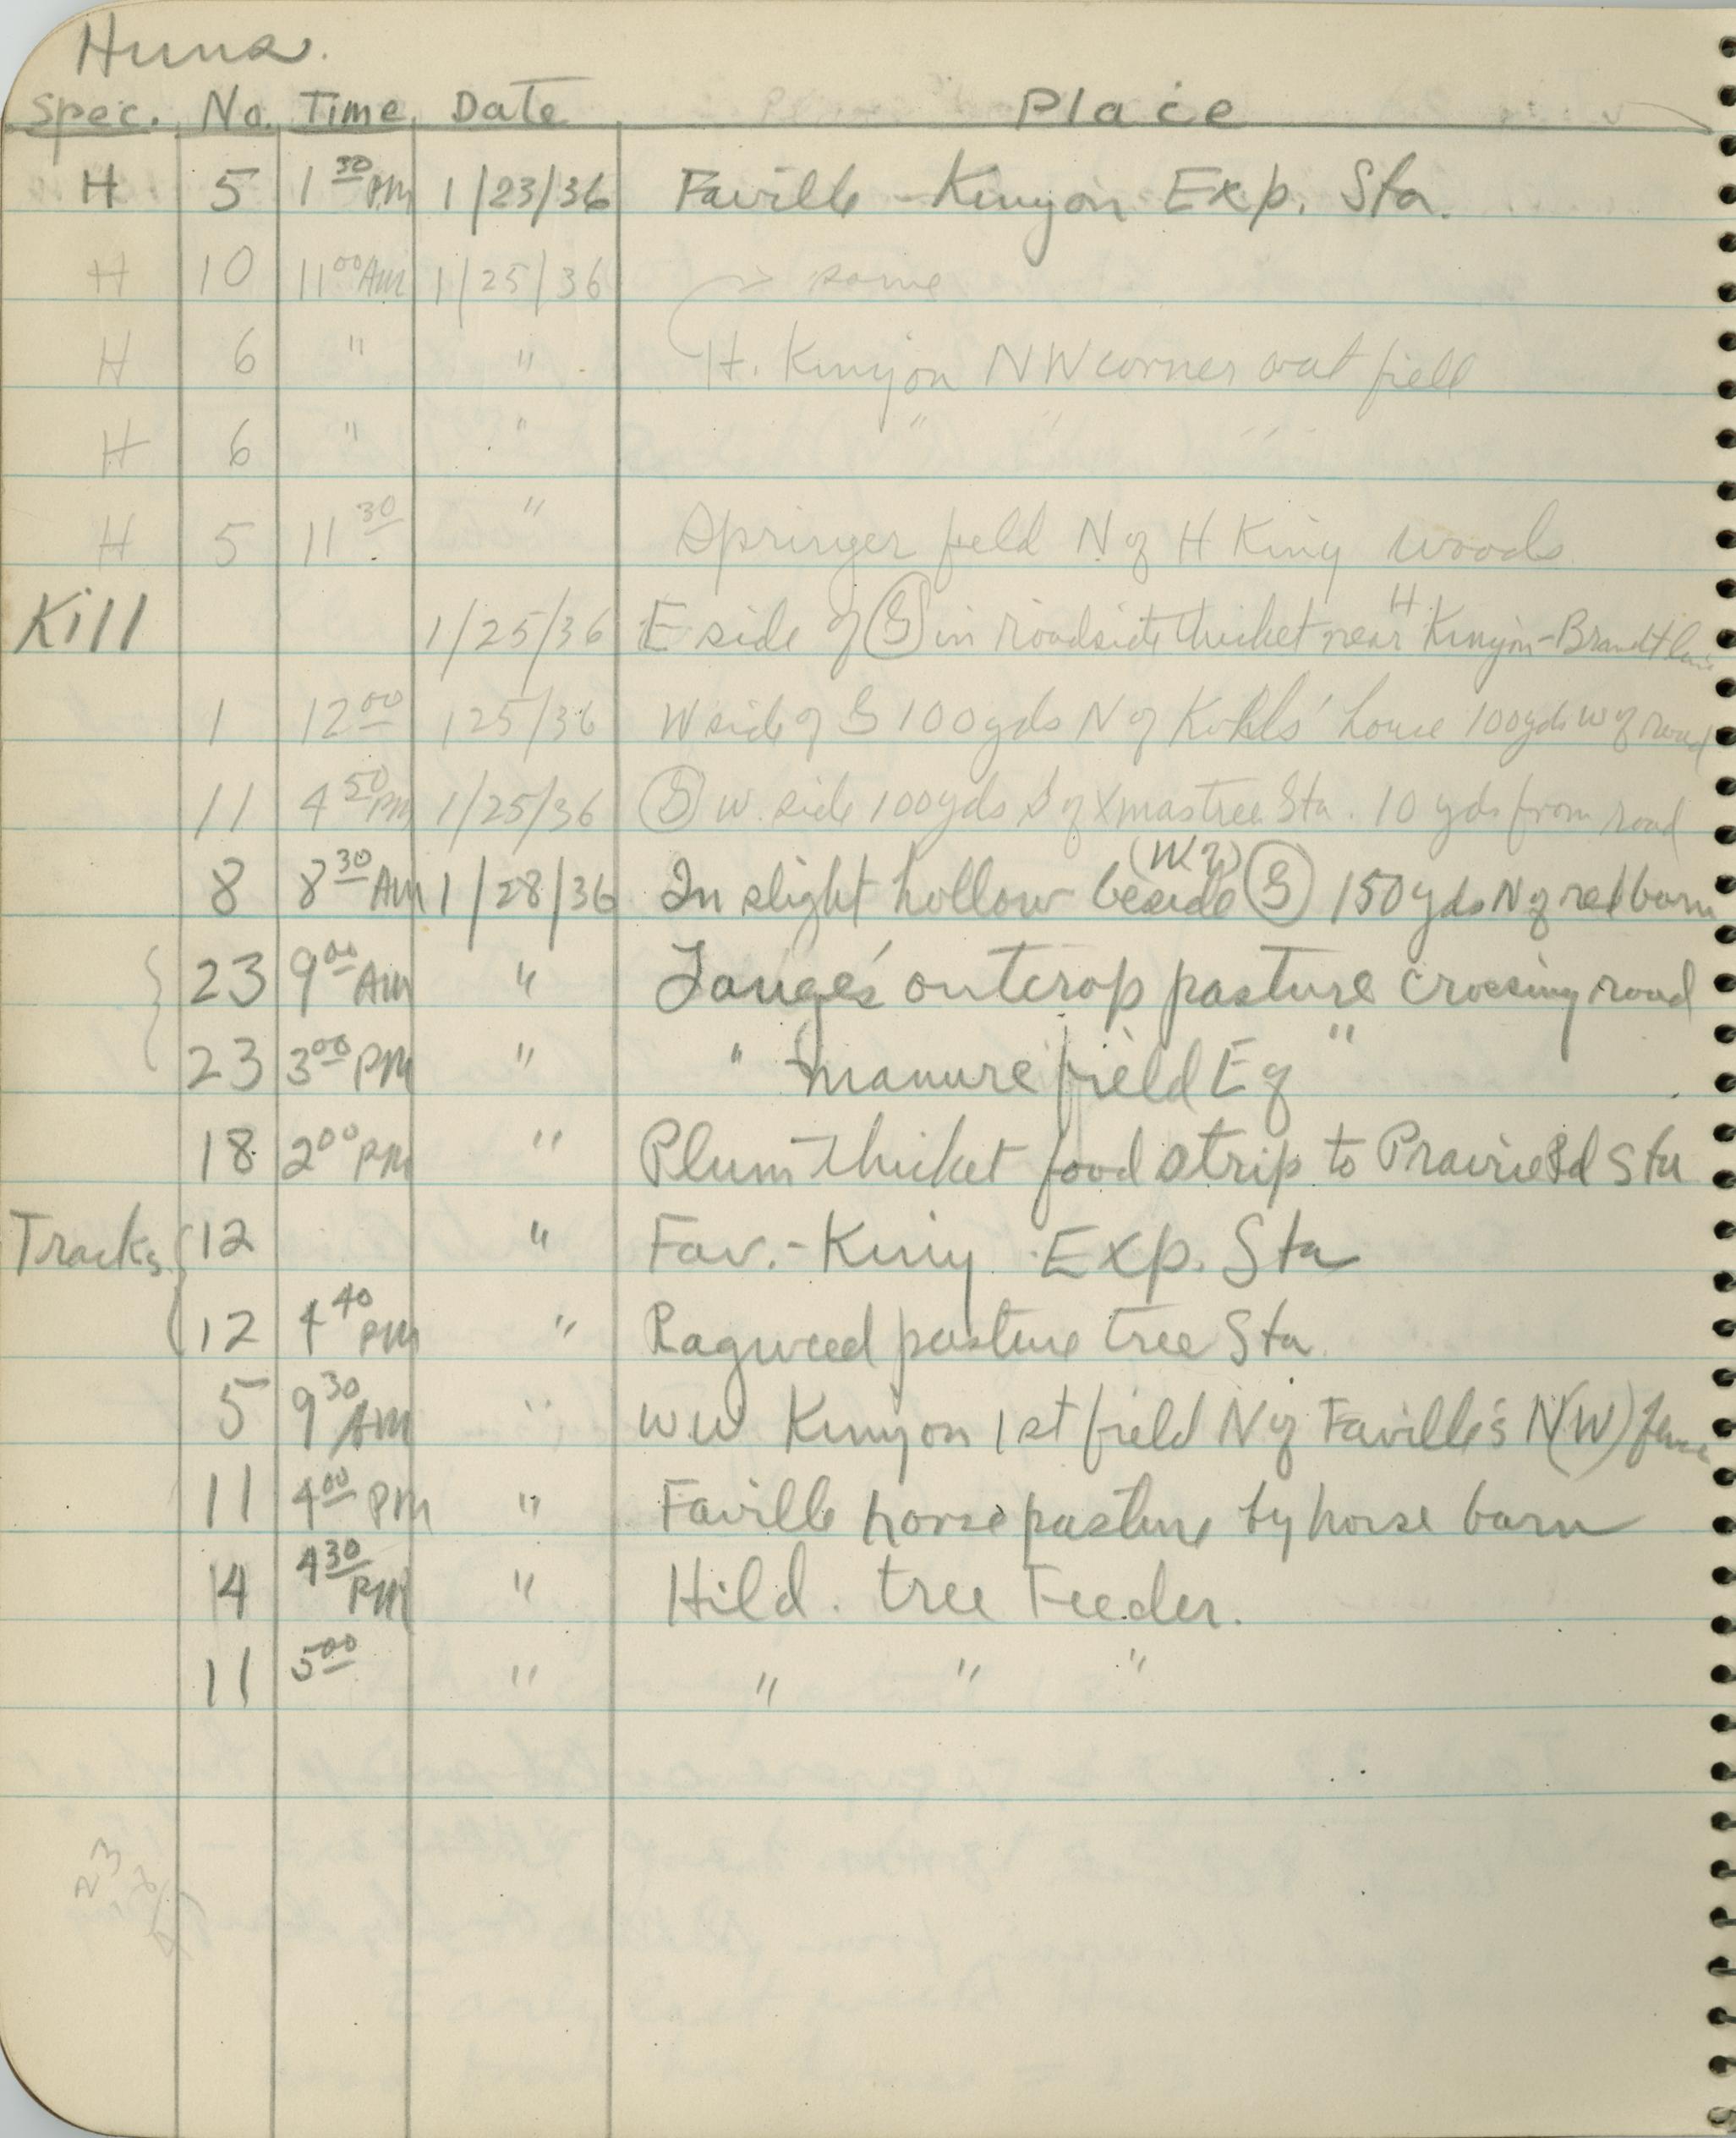 Huns.
Spec. No. Time Date Place
H 5 1 30 PM 1/23/36 Faville-Kinyon Exp. Sta.
H 10 11 00 AM 1/25/36 same
H 6 " " H. Kinyon NW corner oat field
H 6 " " " " "
H 5 11 30 " Springer field N of H King woods
Kill 1/25/36 E side of S in roadside thicket near H. Kinyon-Brandt line
1 12 00 125/36 W side of S 100 yds N of Kohls' house 100 yds W of road
11 4 50 PM 1/25/36 S W. side 100 yds S of Xmas tree Sta. 10 yds from road
8 8 30 AM 1/28/36 In slight hollow beside (W.) S 150 yds N of red barn
23 9 00 AM " Lange's outcrop pasture crossing road
23 3 00 PM " " manure field E of "
18 2 00 PM " Plum thicket food strip to Prairie Rd Sta
Tracks 12 " Fav.-Kiny Exp. Sta
12 4 40 PM " Ragweed pasture tree Sta
5 9 30 AM " WW Kinyon 1st field N of Faville's N(W) fence
11 4 00 PM " Faville horse pasture by horse barn
14 4 30 PM " Hild. tree Feeder.
11 5 00 " " " "
23